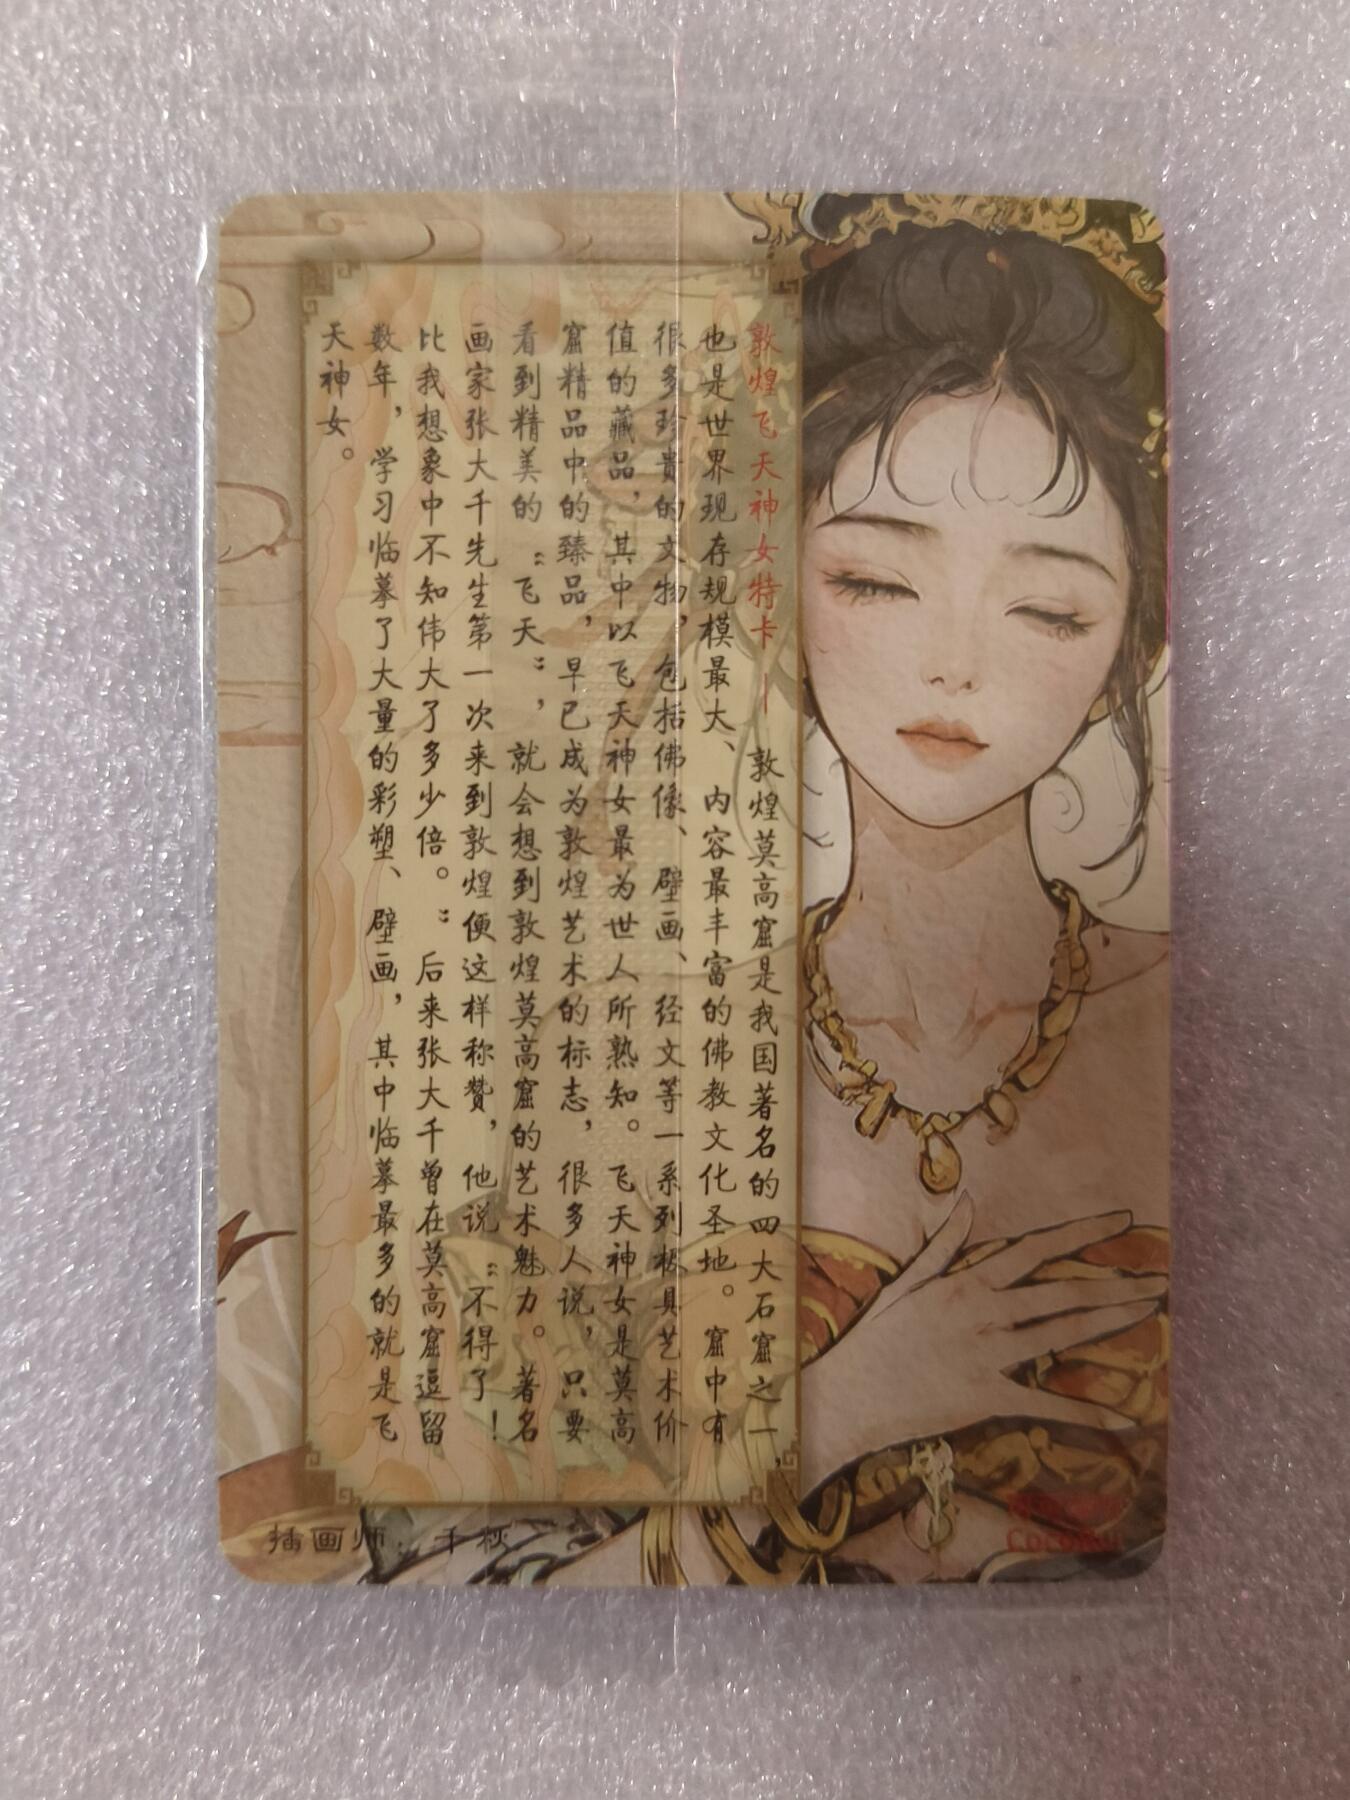 敦煌飞天神女特卡｜敦煌莫高窟是我国著名的四大石窟之一，
也是世界现存规模最大、内容最丰富的佛教文化圣地。窟中有
很多珍贵的文物，包括佛像、壁画、经文等一系列极具艺术价
值的藏品，其中以飞天神女最为世人所熟知。飞天神女是莫高
窟精品中的臻品，早已成为敦煌艺术的标志，很多人说，只要
看到精美的“飞天”，就会想到敦煌莫高窟的艺术魅力。著名
画家张大千先生第一次来到敦煌便这样称赞，他说“不得了！
比我想象中不知伟大了多少倍。”后来张大千曾在莫高窟逗留
数年，学习临摹了大量的彩塑、壁画，其中临摹最多的就是飞
天神女。
插画师：千秋